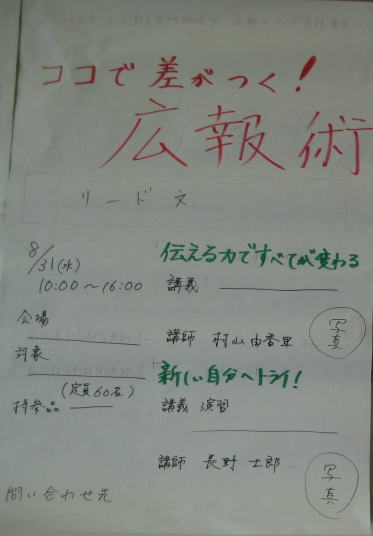 ココで差がつく!
広報術
リード文
8/31(水)
10:00〜16:00
会場
対象
(定員60名)
持参品
問い合わせ先
伝える力ですべてが変わる
講義
講師 村山由香里
写真
新しい自分へトライ!
講義 演習
講師 長野士郎
写真